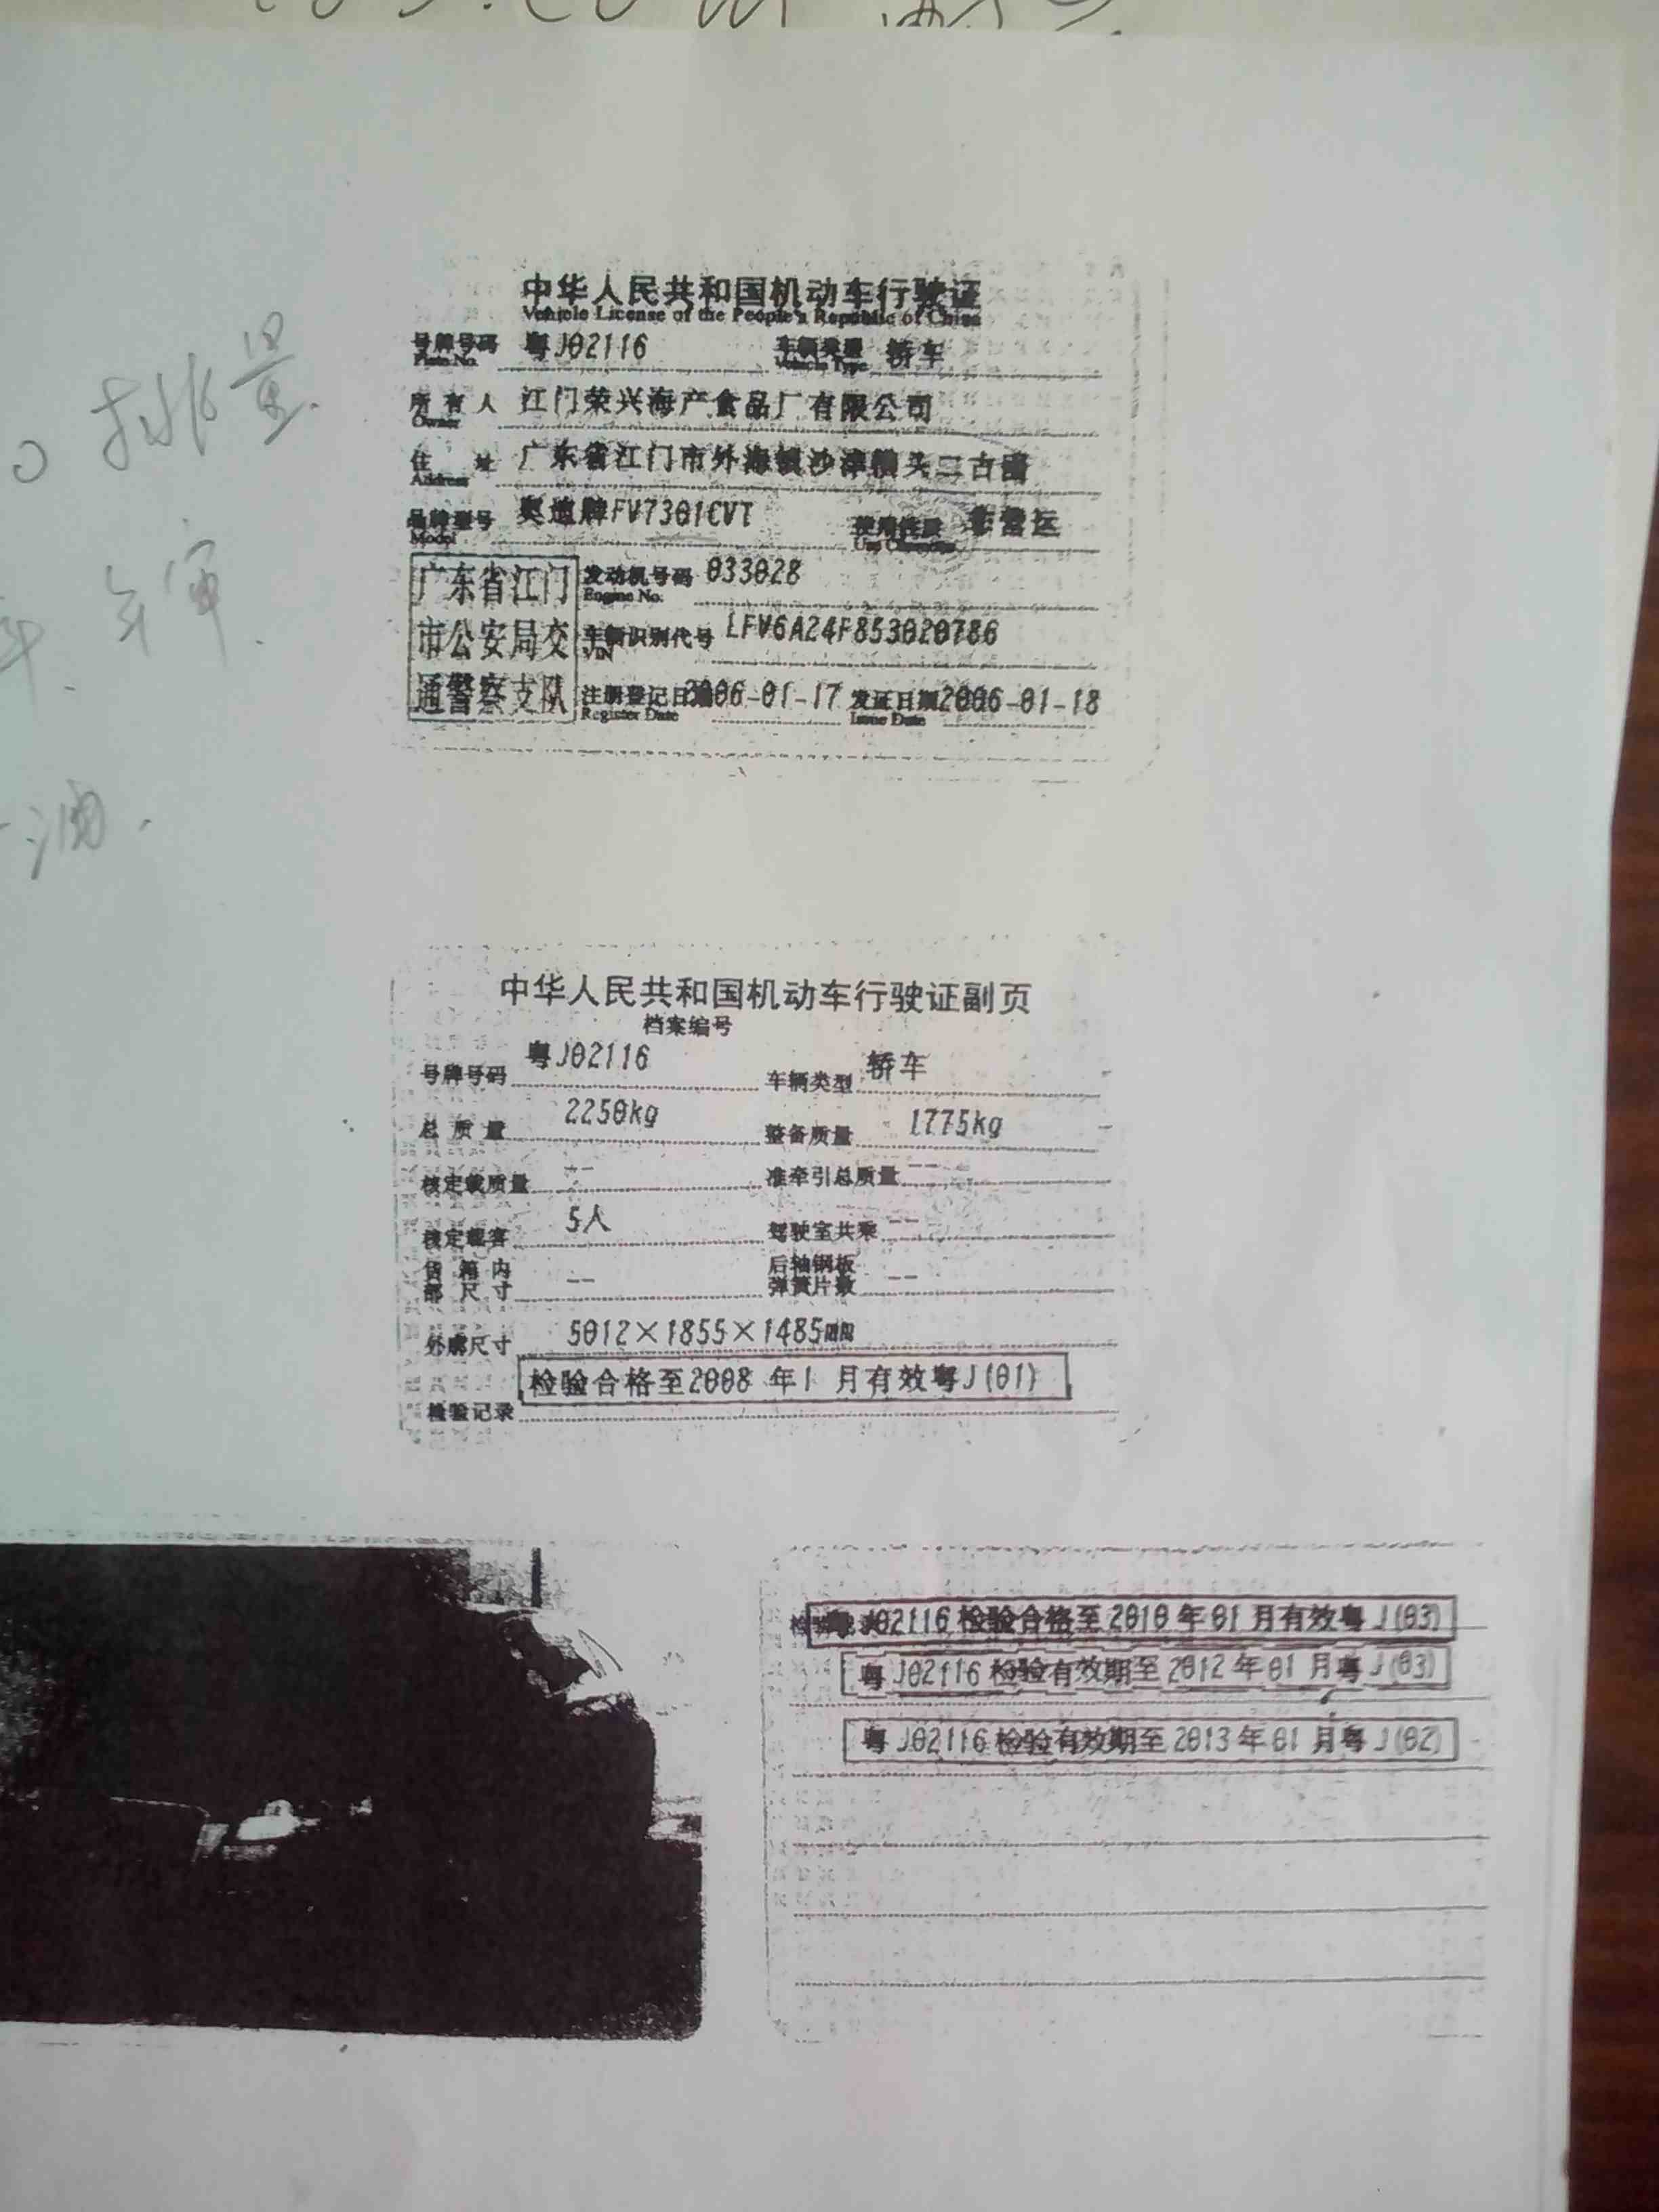 排量
中华人民共和国机动车行驶证
Vehicle License of the People's Republic of China
号牌号码 粤J02116 车辆类型 轿车
Plate No. Vehicle Type
所有人 江门荣兴海产食品厂有限公司
Owner
住址 广东省江门市外海镇沙津横头二古围
Address
品牌型号 奥迪牌FV7301CVT 使用性质 非营运
Model Use Character
广东省江门 发动机号码 033028
Engine No.
市公安局交 车辆识别代号 LFV6A24F853020786
VIN
通警察支队 注册登记日期2006-01-17 发证日期2006-01-18
Register Date Issue Date
油.
中华人民共和国机动车行驶证副页
档案编号
号牌号码 粤J02116 车辆类型 轿车
总质量 2250kg 整备质量 1775kg
核定载质量 -- 准牵引总质量 --
核定载客 5人 驾驶室共乘 --
货箱内 后轴钢板
部尺寸 -- 弹簧片数 --
外廓尺寸 5012×1855×1485mm
检验合格至2008年1月有效粤J(01)
检验记录
粤J02116检验合格至2010年01月有效粤J(03)
粤J02116检验有效期至2012年01月粤J(03)
粤J02116检验有效期至2013年01月粤J(02)